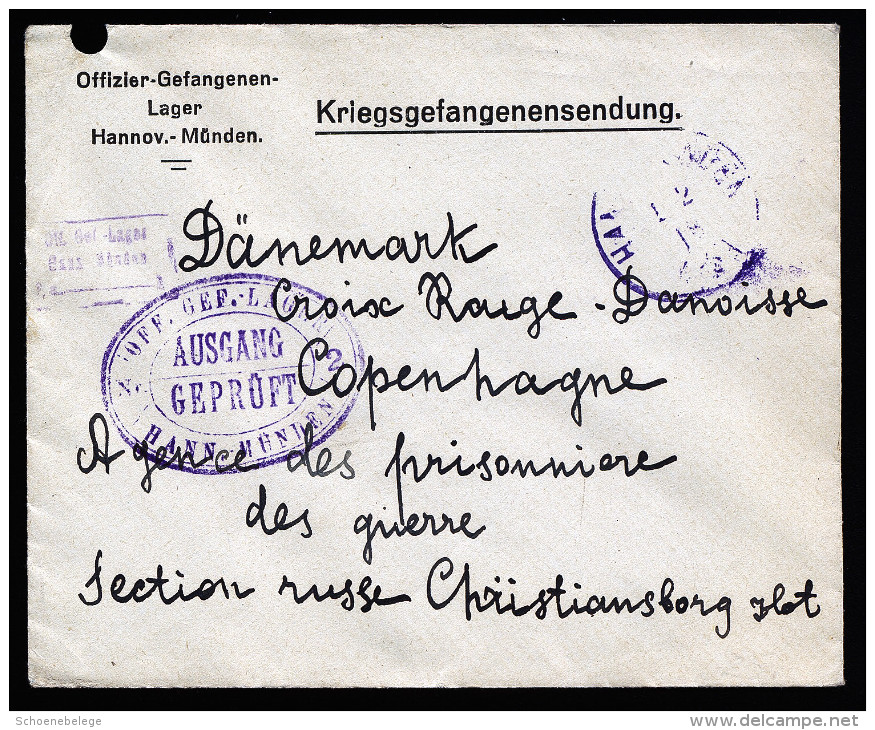 Offizier-Gefangenen-
Lager
Hannov.-Münden.
Kriegsgefangenensendung.
Off. Gef.-Lager
Hann. Münden
Dänemark
Croix Rouge-Danoisse
Copenhagne
Agence des prisonniere
des guerre
Section russe Christiansborg slot
OFF. GEF.-LAGER
AUSGANG
GEPRÜFT
2
HANN. MÜNDEN
Schoenebelege
www.delcampe.net